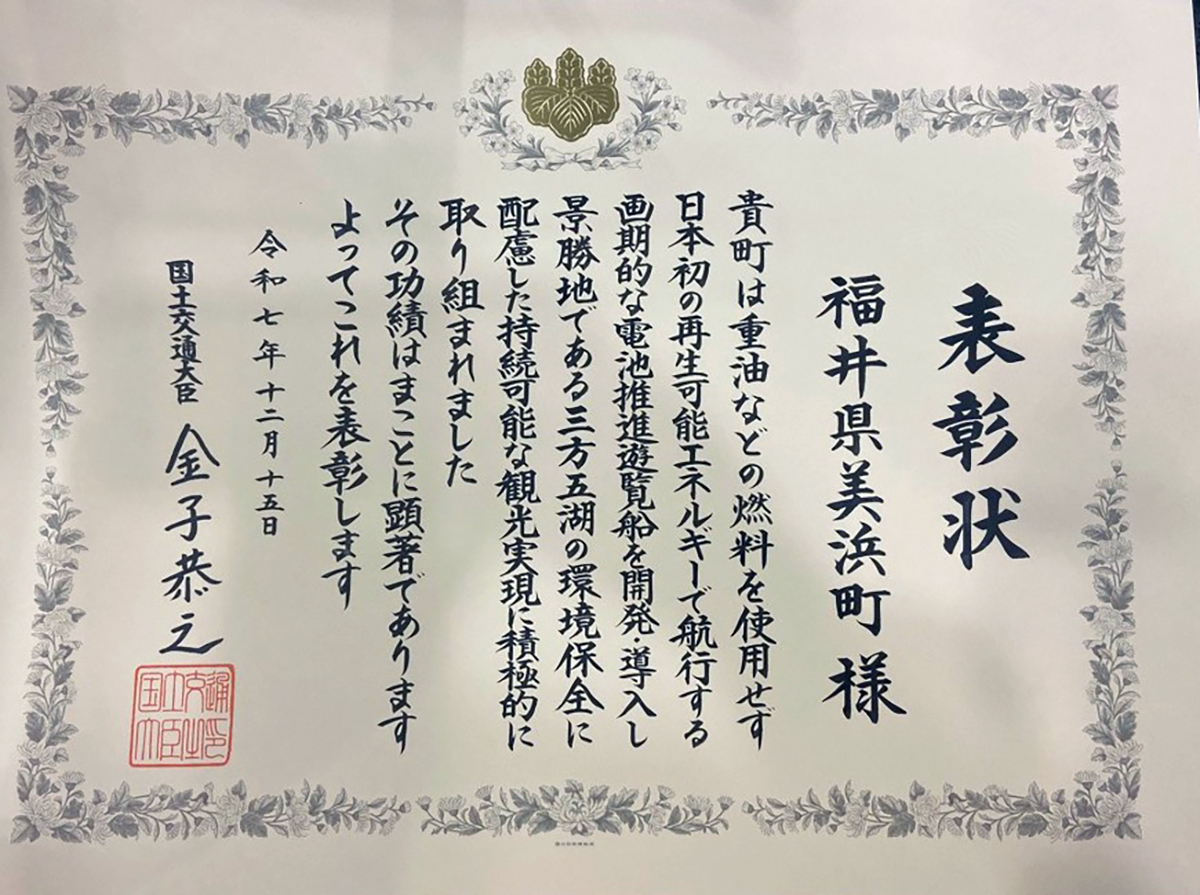 表彰状
福井県美浜町 様
貴町は重油などの燃料を使用せず
日本初の再生可能エネルギーで航行する
画期的な電池推進遊覧船を開発・導入し
景勝地である三方五湖の環境保全に
配慮した持続可能な観光実現に積極的に
取り組まれました
その功績はまことに顕著であります
よってこれを表彰します
令和七年十二月十五日
国土交通大臣 金子恭之